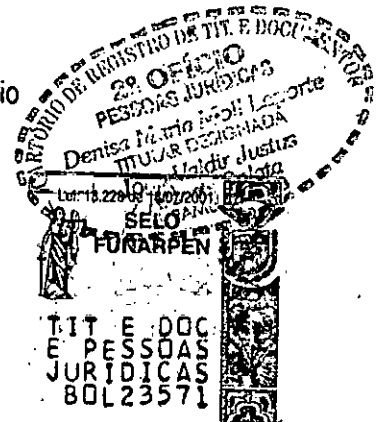 io
CARTÓRIO DE REGISTRO DE TIT. E DOCUMENTOS
2º OFÍCIO
PESSOAS JURÍDICAS
Denise Maria Moli
TITULAR DESIGNADA
Valdir Justus
Lei: 13.228 de 18/07/2001
SELO
FUNARPEN
TIT E DOC
E PESSOAS
JURIDICAS
BOL23571